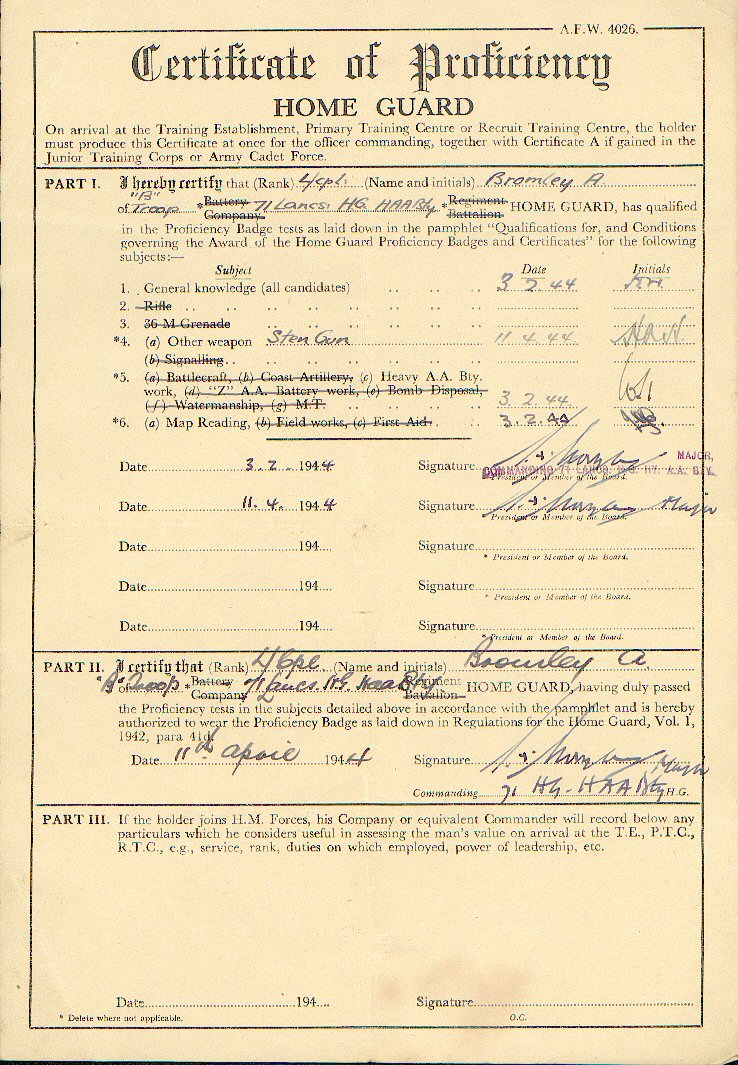 A.F.W. 4026.
Certificate of Proficiency
HOME GUARD
On arrival at the Training Establishment, Primary Training Centre or Recruit Training Centre, the holder
must produce this Certificate at once for the officer commanding, together with Certificate A if gained in the
Junior Training Corps or Army Cadet Force.
PART I. I hereby certify that (Rank) L/cpl. (Name and initials) Bromley A
of "B" Troop *Battery Company 71 Lancs. HG HAABty *Regiment Battalion HOME GUARD, has qualified
in the Proficiency Badge tests as laid down in the pamphlet "Qualifications for, and Conditions
governing the Award of the Home Guard Proficiency Badges and Certificates" for the following
subjects:—
Subject Date Initials
1. General knowledge (all candidates) .. .. .. 3.2.44
2. Rifle .. .. .. .. .. .. .. ..
3. 36 M Grenade .. .. .. .. .. ..
*4. (a) Other weapon Sten Gun 11.4.44
(b) Signalling .. .. .. .. .. ..
*5. (a) Battlecraft, (b) Coast Artillery, (c) Heavy A.A. Bty.
work, (d) "Z" A.A. Battery work, (e) Bomb Disposal,
(f) Watermanship, (g) M.T. .. .. .. .. 3.2.44
*6. (a) Map Reading, (b) Field works, (c) First Aid .. .. 3.2.44
Date 3.2. 1944 Signature MAJOR,
COMMANDING 71 LANCS. H.G. HY. A.A. BTY.
* President or Member of the Board.
Date 11.4. 1944 Signature Major
* President or Member of the Board.
Date 194 Signature
* President or Member of the Board.
Date 194 Signature
* President or Member of the Board.
Date 194 Signature
* President or Member of the Board.
PART II. I certify that (Rank) L/Cpl (Name and initials) Bromley A.
of "B" Troop *Battery Company 71 Lancs. HG HAABty Regiment Battalion HOME GUARD, having duly passed
the Proficiency tests in the subjects detailed above in accordance with the pamphlet and is hereby
authorized to wear the Proficiency Badge as laid down in Regulations for the Home Guard, Vol. 1,
1942, para 41d.
Date 11th April 1944 Signature Major
Commanding 71 HG-HAABty H.G.
PART III. If the holder joins H.M. Forces, his Company or equivalent Commander will record below any
particulars which he considers useful in assessing the man's value on arrival at the T.E., P.T.C.,
R.T.C., e.g., service, rank, duties on which employed, power of leadership, etc.
Date 194 Signature
* Delete where not applicable. O.C.